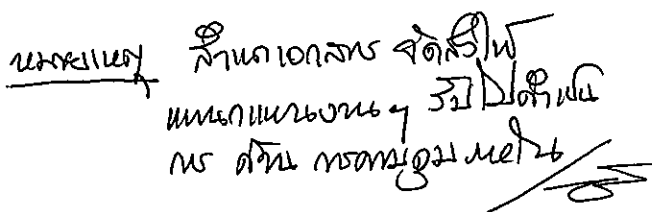 หมายเหตุ สำเนาเอกสาร จัดส่งให้
แผนกแผนงานฯ รับไปดำเนิน
การ ด้าน การควบคุม ภายใน